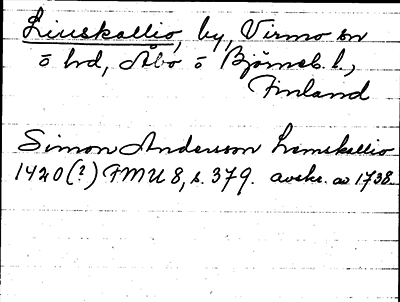 Liuskallio, by, Virmo sn
o hd, Åbo o Björneb. l.,
Finland
Simon Andersson Liuskallio
1420(?) FMU 8, s. 379. avskr. av 1738.